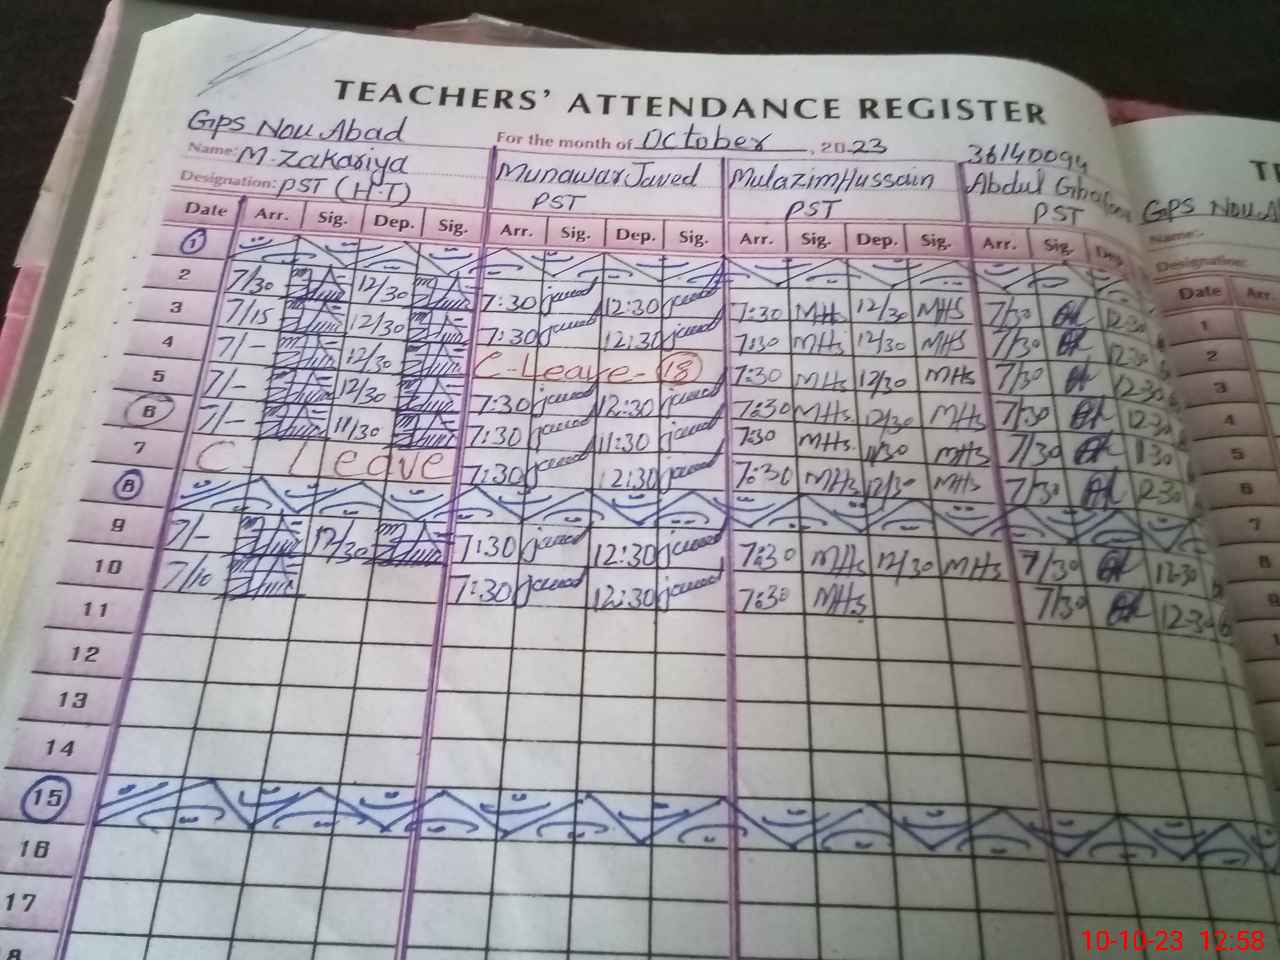 TEACHERS' ATTENDANCE REGISTER
GPS Nou Abad For the month of October, 2023 36140094
Name: M. Zakariya Munawar Javed Mulazim Hussain Abdul
Designation: PST (H.T) PST PST PST GPS Nou
Date Arr. Sig. Dep. Sig. Arr. Sig. Dep. Sig. Arr. Sig. Dep. Sig. Arr. Sig.
1
2 7/30 12/30 7:30 javed 12:30 javed 7:30 MHs 12/30 MHs 7/30 12:30
3 7/15 12/30 7:30 javed 12:30 javed 7:30 MHs 12/30 MHs 7/30 12:30
4 7/- 12/30 C-Leave-18 7:30 MHs 12/30 MHs 7/30 12:30
5 7/- 12/30 7:30 javed 12:30 javed 7:30 MHs 12/30 MHs 7/30 12:30
6 7/- 11/30 7:30 javed 11:30 javed 7:30 MHs 11/30 MHs 7/30 11:30
7 C. Leave 7:30 javed 12:30 javed 7:30 MHs 12/30 MHs 7/30 12:30
8
9 7/- 12/30 7:30 javed 12:30 javed 7:30 MHs 12/30 MHs 7/30 12:30
10 7/10 7:30 javed 12:30 javed 7:30 MHs 7/30 12:30
11
12
13
14
15
16
17
Name:
Designation:
Date Arr.
1
2
3
4
5
6
7
8
10-10-23 12:58